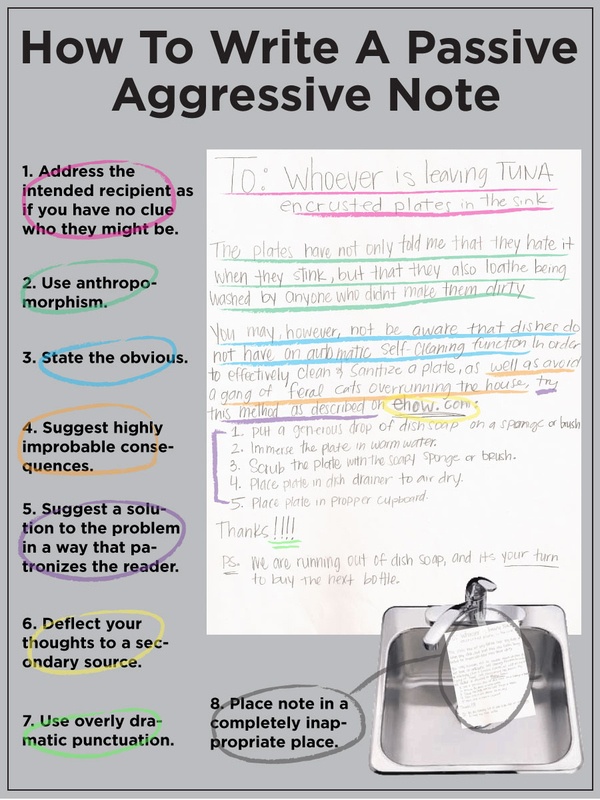 How To Write A Passive
Aggressive Note
1. Address the
intended recipient as
if you have no clue
who they might be.
2. Use anthropo-
morphism.
3. State the obvious.
4. Suggest highly
improbable conse-
quences.
5. Suggest a solu-
tion to the problem
in a way that pa-
tronizes the reader.
6. Deflect your
thoughts to a sec-
ondary source.
7. Use overly dra-
matic punctuation.
To: Whoever is leaving TUNA
encrusted plates in the sink
The plates have not only told me that they hate it
when they stink, but that they also loathe being
washed by anyone who didnt make them dirty
You may, however, not be aware that dishes do
not have an automatic self-cleaning function In order
to effectively clean & sanitize a plate, as well as avoid
a gang of feral cats overrunning the house, try
this method as described on ehow.com:
1. Put a generous drop of dish soap on a sponge or brush
2. Immerse the plate in warm water.
3. Scrub the plate with the soapy sponge or brush.
4. Place plate in dish drainer to air dry.
5. Place plate in propper cupboard.
Thanks!!!!
PS. We are running out of dish soap, and its your turn
to buy the next bottle.
8. Place note in a
completely inap-
propriate place.